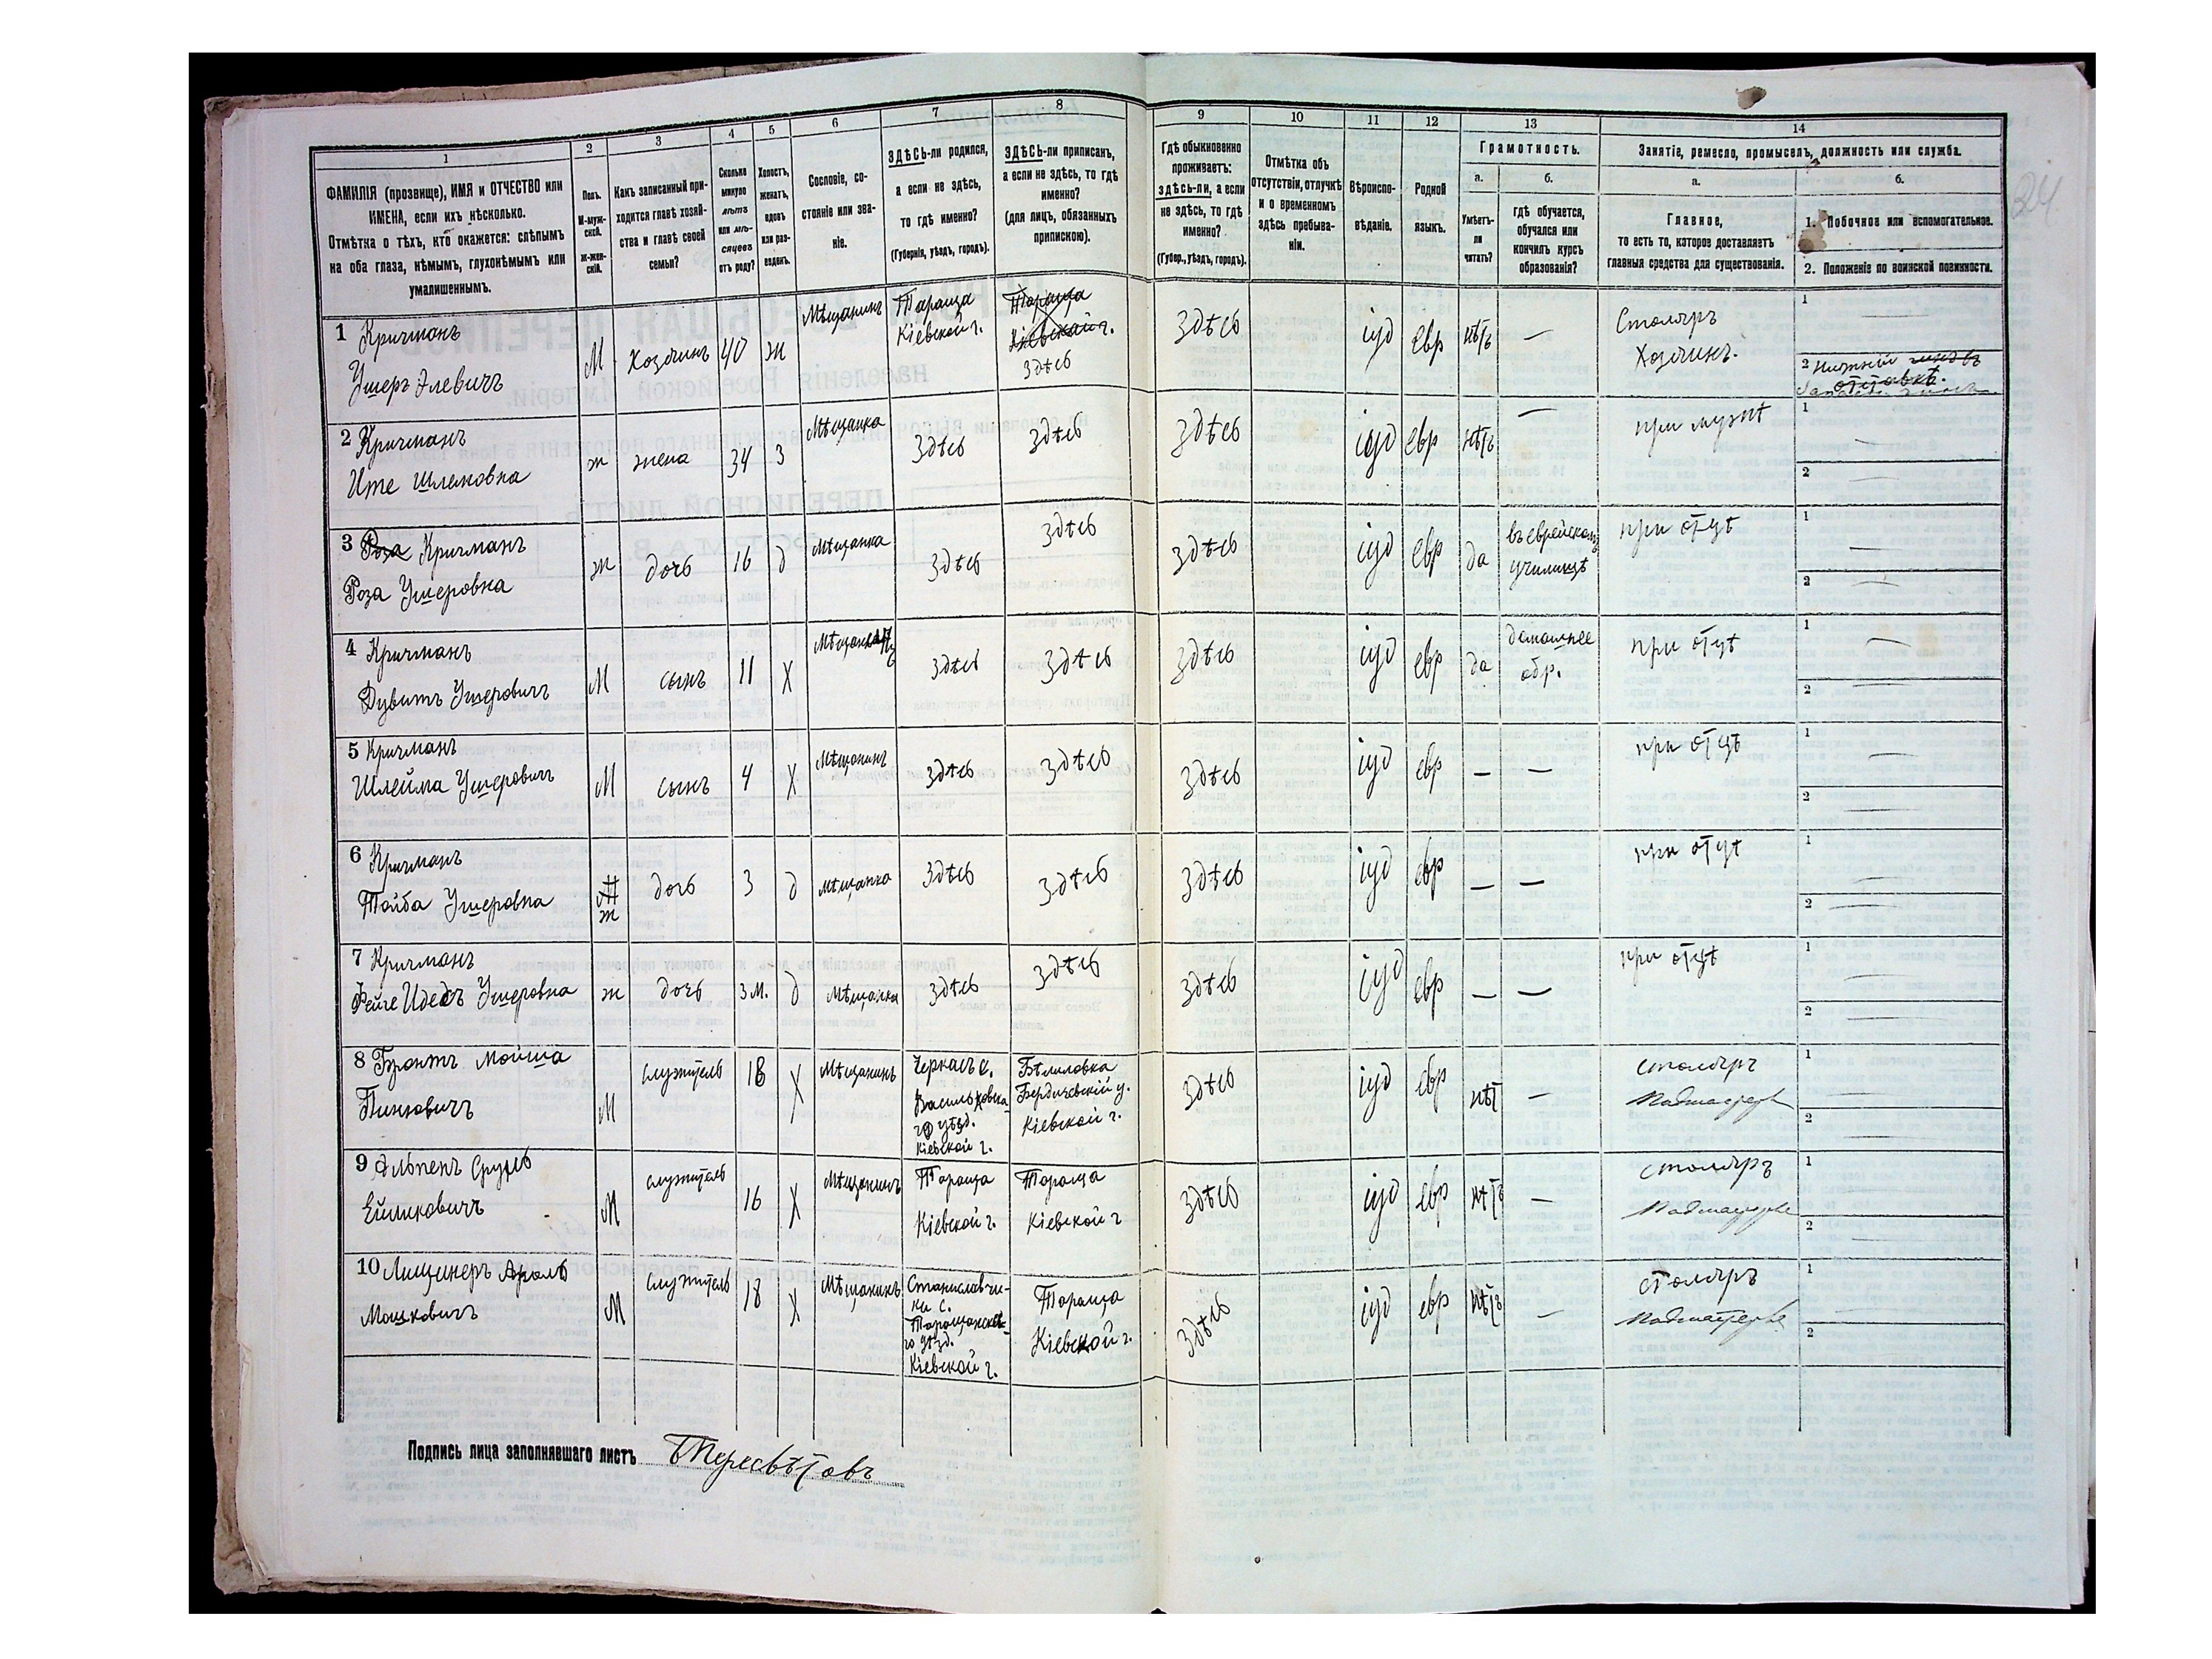 1
2
3
4
5
6
7
8
9
10
11
12
13
14
ФАМИЛІЯ (прозвище), ИМЯ и ОТЧЕСТВО или
ИМЕНА, если ихъ нѣсколько.
Отмѣтка о тѣхъ, кто окажется: слѣпымъ
на оба глаза, нѣмымъ, глухонѣмымъ или
умалишеннымъ.
Полъ.
М-муж-
ской.
Ж-жен-
скій.
Какъ записанный при-
ходится главѣ хозяй-
ства и главѣ своей
семьи?
Сколько
минуло
лѣтъ
или мѣ-
сяцевъ
отъ роду?
Холостъ,
женатъ,
вдовъ
или раз-
веденъ.
Сословіе, со-
стояніе или зва-
ніе.
ЗДѢСЬ-ли родился,
а если не здѣсь,
то гдѣ именно?
(Губернія, уѣздъ, городъ).
ЗДѢСЬ-ли приписанъ,
а если не здѣсь, то гдѣ
именно?
(для лицъ, обязанныхъ
припискою).
Гдѣ обыкновенно
проживаетъ:
здѣсь-ли, а если
не здѣсь, то гдѣ
именно?
(Губер., уѣздъ, городъ).
Отмѣтка объ
отсутствіи, отлучкѣ
и о временномъ
здѣсь пребыва-
ніи.
Вѣроиспо-
вѣданіе.
Родной
языкъ.
Грамотность.
а.
б.
Умѣетъ-
ли
читать?
гдѣ обучается,
обучался или
кончилъ курсъ
образованія?
Занятіе, ремесло, промыселъ, должность или служба.
а.
б.
Главное,
то есть то, которое доставляетъ
главныя средства для существованія.
1. Побочное или вспомогательное.
2. Положеніе по воинской повинности.
24
1 Кричманъ
Ушеръ Элевичъ
М
хозяинъ
40
ж
Мѣщанинъ
Тараща
Кіевской г.
Тараща
Кіевской г.
здѣсь
здѣсь
іуд
евр
нѣтъ
—
Столяръ
Хозяинъ.
1
2 Нижній чинъ въ
отставкѣ.
2 Кричманъ
Ите Шлемовна
ж
жена
34
З
Мѣщанка
здѣсь
здѣсь
здѣсь
іуд
евр
нѣтъ
—
при мужѣ
1
2
3 Роза Кричманъ
Роза Ушеровна
ж
дочь
16
д
Мѣщанка
здѣсь
здѣсь
здѣсь
іуд
евр
да
въ еврейском
училищѣ
при отцѣ
1
2
4 Кричманъ
Дувитъ Ушеровичъ
М
сынъ
11
Х
здѣсь
здѣсь
здѣсь
іуд
евр
да
домашнее
обр.
при отцѣ
1
2
5 Кричманъ
Шлейма Ушеровичъ
М
сынъ
4
Х
Мѣщанинъ
здѣсь
здѣсь
здѣсь
іуд
евр
—
—
при отцѣ
1
2
6 Кричманъ
Тойба Ушеровна
ж
дочь
3
д
мѣщанка
здѣсь
здѣсь
здѣсь
іуд
евр
—
—
при отцѣ
1
2
7 Кричманъ
Фейге Идесъ Ушеровна
ж
дочь
3 м.
д
Мѣщанка
здѣсь
здѣсь
здѣсь
іуд
евр
—
—
при отцѣ
1
2
8 Бронтъ Мойша
Пиньовичъ
М
служитель
18
Х
Мѣщанинъ
Черкасъ с.
Васильковска-
го уѣзд.
Кіевской г.
Бѣлиловка
Бердичевскій у.
Кіевской г.
здѣсь
іуд
евр
нѣт
—
столяръ
Подмастерье
1
2
9 Эльпенъ Сруль
М
служитель
16
Х
Мѣщанинъ
Тараща
Кіевской г.
Тараща
Кіевской г
здѣсь
іуд
евр
нѣтъ
—
столяръ
Подмастерье
1
2
10 Лищинеръ Аронъ
Мошковичъ
М
служитель
18
Х
Мѣщанинъ
Станиславчи-
ки с.
Таращанска-
го уѣзд.
Кіевской г.
Тараща
Кіевской г.
здѣсь
іуд
евр
нѣтъ
—
столяръ
Подмастерье
1
2
Подпись лица заполнявшаго листъ Пересвѣтовъ